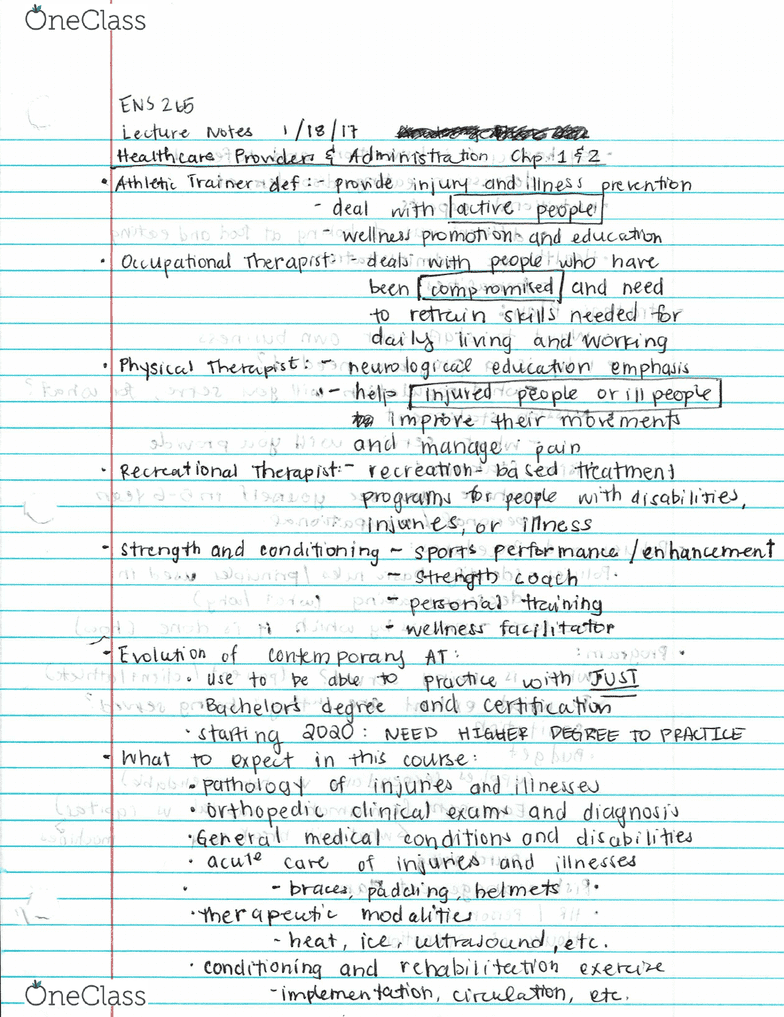 OneClass
ENS 265
Lecture Notes 1/18/17
Healthcare Providers & Administration Chp. 1 & 2
• Athletic Trainer def: - provide injury and illness prevention
- deal with active people
- wellness promotion and education
• Occupational Therapist: - deals with people who have
been compromised and need
to retrain skills needed for
daily living and working
• Physical Therapist: - neurological education emphasis
- help injured people or ill people
improve their movements
and manage pain
• Recreational Therapist: - recreation-based treatment
programs for people with disabilities,
injuries, or illness
• Strength and conditioning - sports performance/enhancement
- strength coach
- personal training
- wellness facilitator
• Evolution of contemporary AT:
• use to be able to practice with JUST
Bachelors degree and certification
• starting 2020: NEED HIGHER DEGREE TO PRACTICE
• What to expect in this course:
• pathology of injuries and illnesses
• orthopedic clinical exams and diagnosis
• General medical conditions and disabilities
• acute care of injuries and illnesses
- braces, padding, helmets
• therapeutic modalities
- heat, ice, ultrasound, etc.
• conditioning and rehabilitation exercize
- implementation, circulation, etc.
OneClass